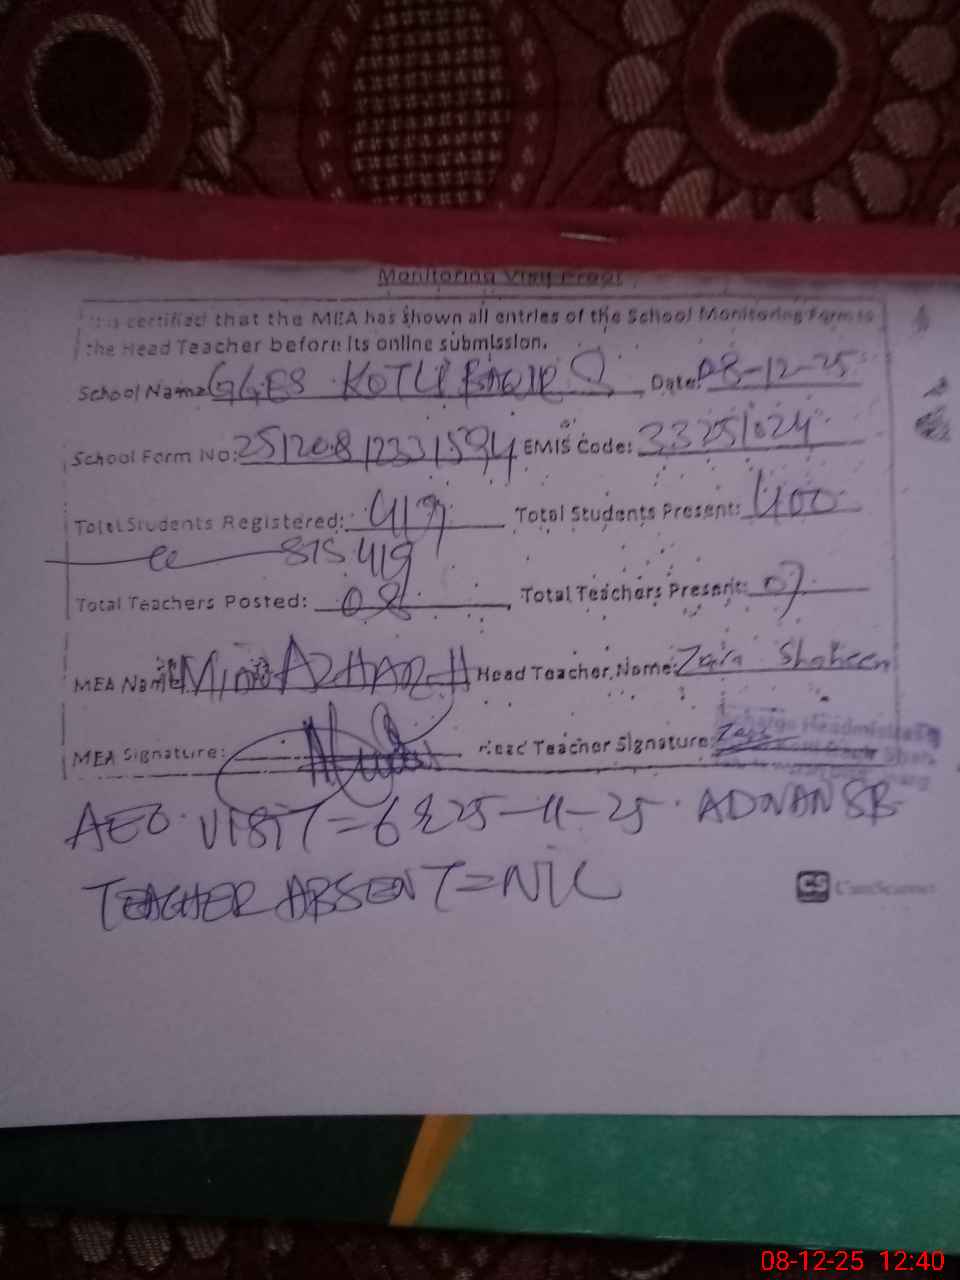 Monitoring Visit Proof
It is certified that the MEA has shown all entries of the School Monitoring Form to
the Head Teacher before its online submission.
School Name: GGES KOTLI Date: 08-12-25
School Form No: 25120812331594 EMIS Code: 33251024
Total Students Registered: 419 Total Students Present: 400
SIS 419
Total Teachers Posted: 08 Total Teachers Present: 07
MEA Name: AZHAR Head Teacher Name: Zaira Shaheen
MEA Signature: Head Teacher Signature:
Headmistress
AEO VISIT = 6 & 25-11-25. ADNAN SB
TEACHER ABSENT = NIL
CS CamScanner
08-12-25 12:40